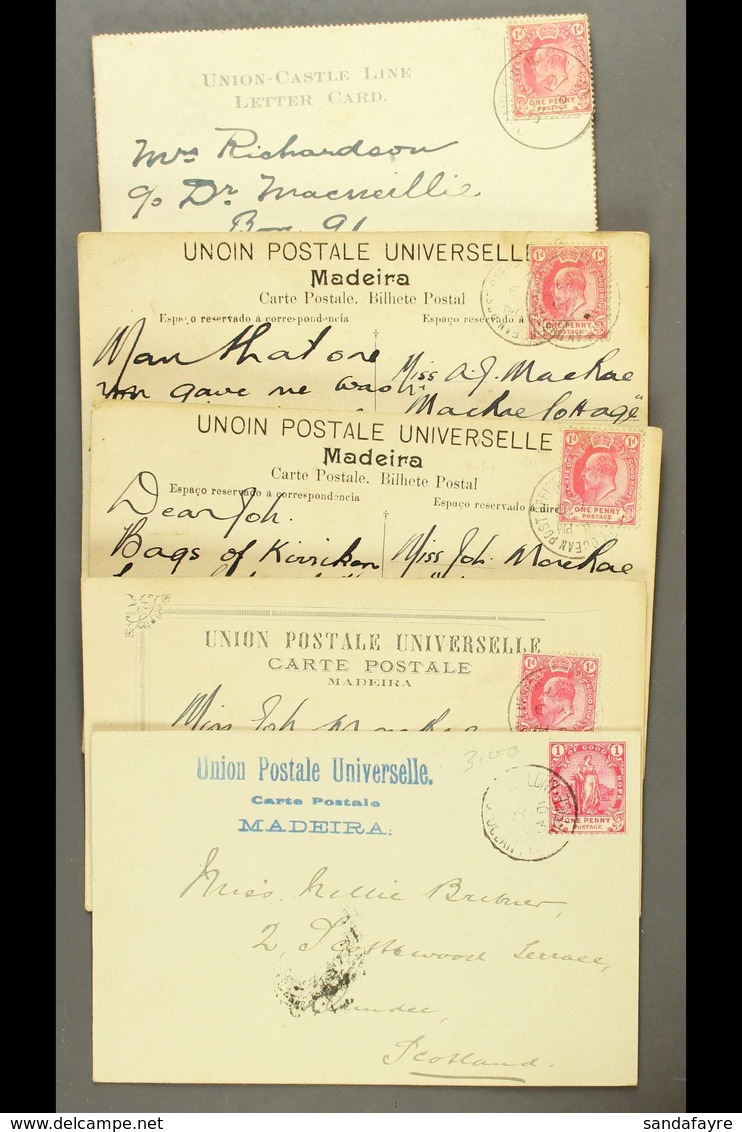 UNION-CASTLE LINE
LETTER CARD.
1d 1d
ONE PENNY
POSTAGE
Mrs Richardson
c/o Dr Macneillie
Box 91
UNOIN POSTALE UNIVERSELLE
Madeira
Carte Postale. Bilhete Postal
Espaço reservado á correspondencia
Espaço reservado á
1d 1d
ONE PENNY
POSTAGE
Man that one
gave me was
Miss A. J. MacRae
"MacRae Cottage"
UNOIN POSTALE UNIVERSELLE
Madeira
Carte Postale. Bilhete Postal
Espaço reservado á correspondencia
Espaço reservado á dire
1d 1d
ONE PENNY
POSTAGE
OCEAN POST
Dear Joh.
Bags of
Miss Joh. MacRae
UNION POSTALE UNIVERSELLE
CARTE POSTALE
MADEIRA
1d 1d
Miss Joh MacRae
Union Postale Universelle.
Carte Postale
MADEIRA.
3.00
1 OF GOOD 1
HOPE
ONE PENNY
POSTAGE
Miss Nellie Bribner,
2, Scottswood Terrace,
Dundee,
Scotland.
sandafayre